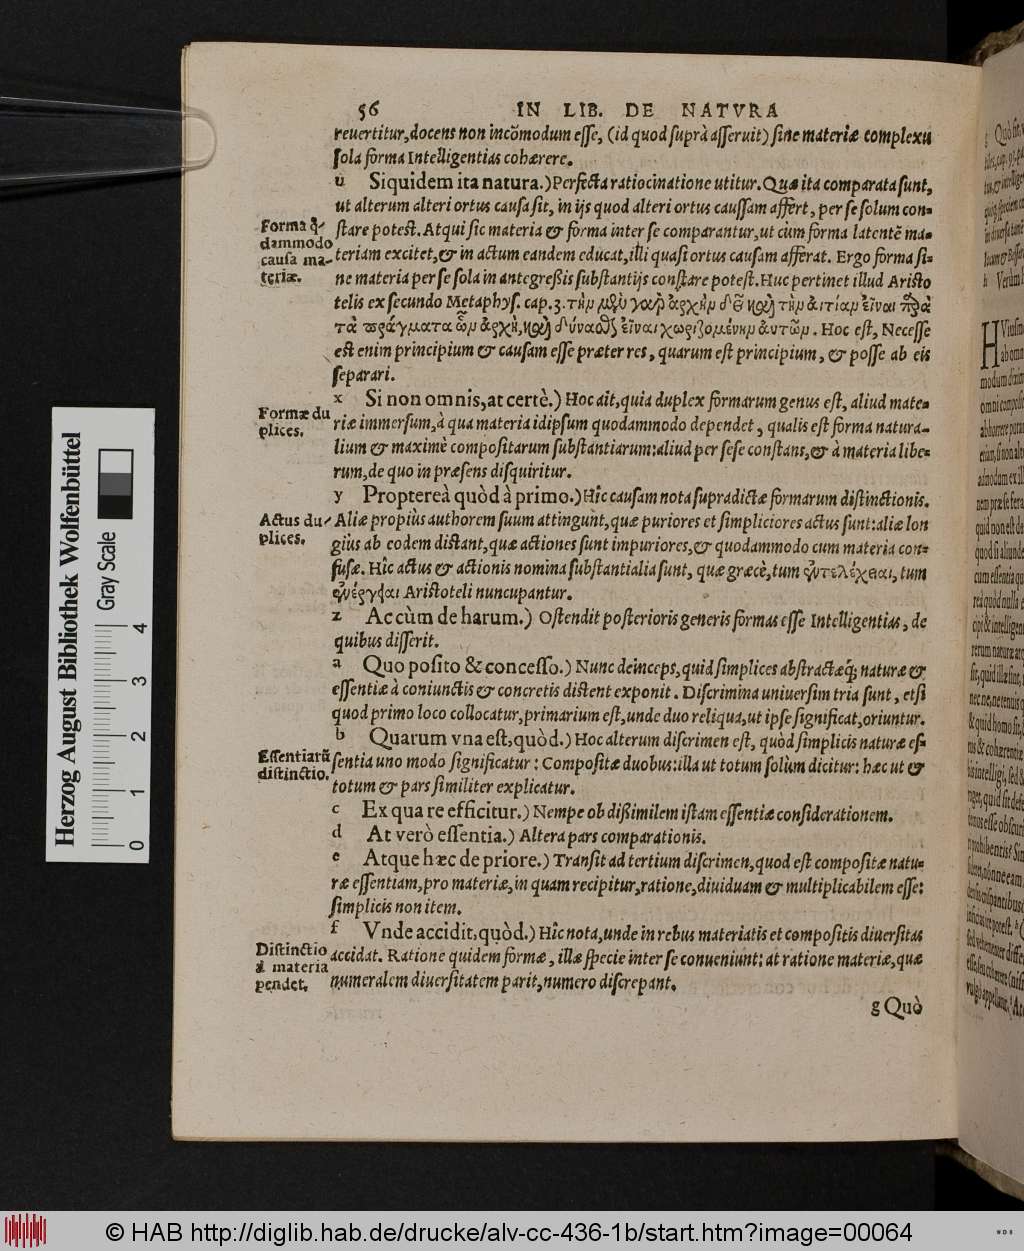 56 IN LIB. DE NATVRA
reuertitur, docens non incõmodum esse, (id quod suprà asseruit) sine materiæ complexu
sola forma Intelligentias cohærere.
u Siquidem ita natura.) Perfecta ratiocinatione utitur. Quæ ita comparata sunt,
ut alterum alteri ortus causa sit, in ijs quod alteri ortus caussam affert, per se solum con=
Forma q̃-
dammodo
causa ma-
teriæ.
stare potest. Atqui sic materia & forma inter se comparantur, ut cùm forma latentẽ ma=
teriam excitet, & in actum eandem educat, illi quasi ortus causam afferat. Ergo forma si=
ne materia per se sola in antegreßis substantijs constare potest. Huc pertinet illud Aristo
telis ex secundo Metaphys. cap. 3. τὴν μὲν γὰρ ἀρχὴν δεῖ καὶ τὴν ἀιτίαν εἶναι πρὸ
τὰ πράγματα ὧν ἀρχὴ, καὶ δύναθς εἶναι χωριζομένην ἀυτῶν. Hoc est, Necesse
est enim principium & causam esse præter res, quarum est principium, & posse ab eis
separari.
x Si non omnis, at certè.) Hoc ait, quia duplex formarum genus est, aliud mate=
Formæ du
plices.
riæ immersum, à qua materia id ipsum quodammodo dependet, qualis est forma natura=
lium & maximè compositarum substantiarum: aliud per sese constans, & à materia libe=
rum, de quo in præsens disquiritur.
y Propterea quòd à primo.) Hîc causam nota supradictæ formarum distinctionis.
Actus du-
plices.
Aliæ propiùs authorem suum attingunt, quæ puriores et simpliciores actus sunt: aliæ lon
giùs ab eodem distant, quæ actiones sunt impuriores, & quodammodo cum materia con=
fusæ. Hîc actus & actionis nomina substantialia sunt, quæ græcè, tum ἐντελέχειαι, tum
ἐνέργειαι Aristoteli nuncupantur.
z Ac cùm de harum.) Ostendit posterioris generis formas esse Intelligentias, de
quibus disserit.
a Quo posito & concesso.) Nunc deinceps, quid simplices abstractæq́; naturæ &
essentiæ à coniunctis & concretis distent exponit. Discrimina uniuersim tria sunt, etsi
quod primo loco collocatur, primarium est, unde duo reliqua, ut ipse significat, oriuntur.
b Quarum vna est, quòd.) Hoc alterum discrimen est, quòd simplicis naturæ es=
Essentiarũ
distinctio.
sentia uno modo significatur: Compositæ duobus: illa ut totum solùm dicitur: hæc ut &
totum & pars similiter explicatur.
c Ex qua re efficitur.) Nempe ob dißimilem istam essentiæ considerationem.
d At verò essentia.) Altera pars comparationis.
e Atque hæc de priore.) Transit ad tertium discrimen, quod est compositæ natu=
ræ essentiam, pro materiæ, in quam recipitur, ratione, diuiduam & multiplicabilem esse:
simplicis non item.
f Vnde accidit, quòd.) Hîc nota, unde in rebus materiatis et compositis diuersitas
Distinctio
à materia
pendet.
accidat. Ratione quidem formæ, illæ specie inter se conueniunt: at ratione materiæ, quæ
numeralem diuersitatem parit, numero discrepant.
g Quò
Herzog August Bibliothek Wolfenbüttel
Gray Scale
0 1 2 3 4
© HAB http://diglib.hab.de/drucke/alv-cc-436-1b/start.htm?image=00064